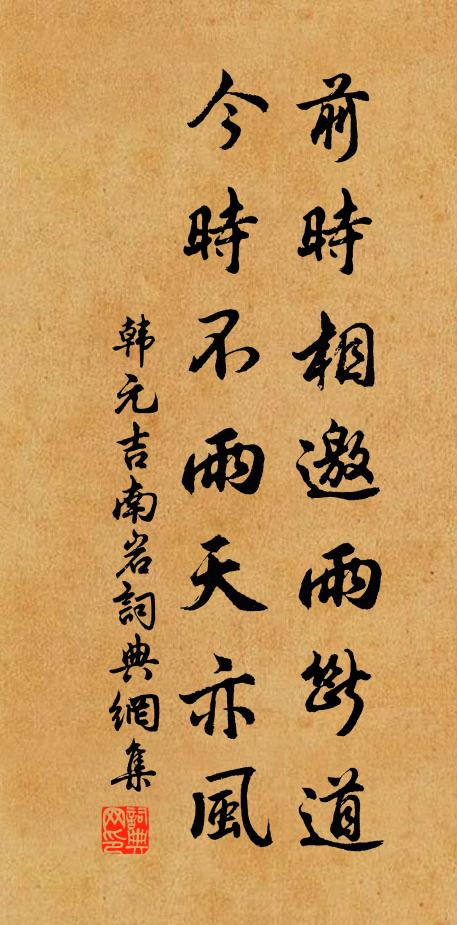 前時相邀雨斷道
今時不雨天亦風
韩元吉南岩詞典網集
詞典網印